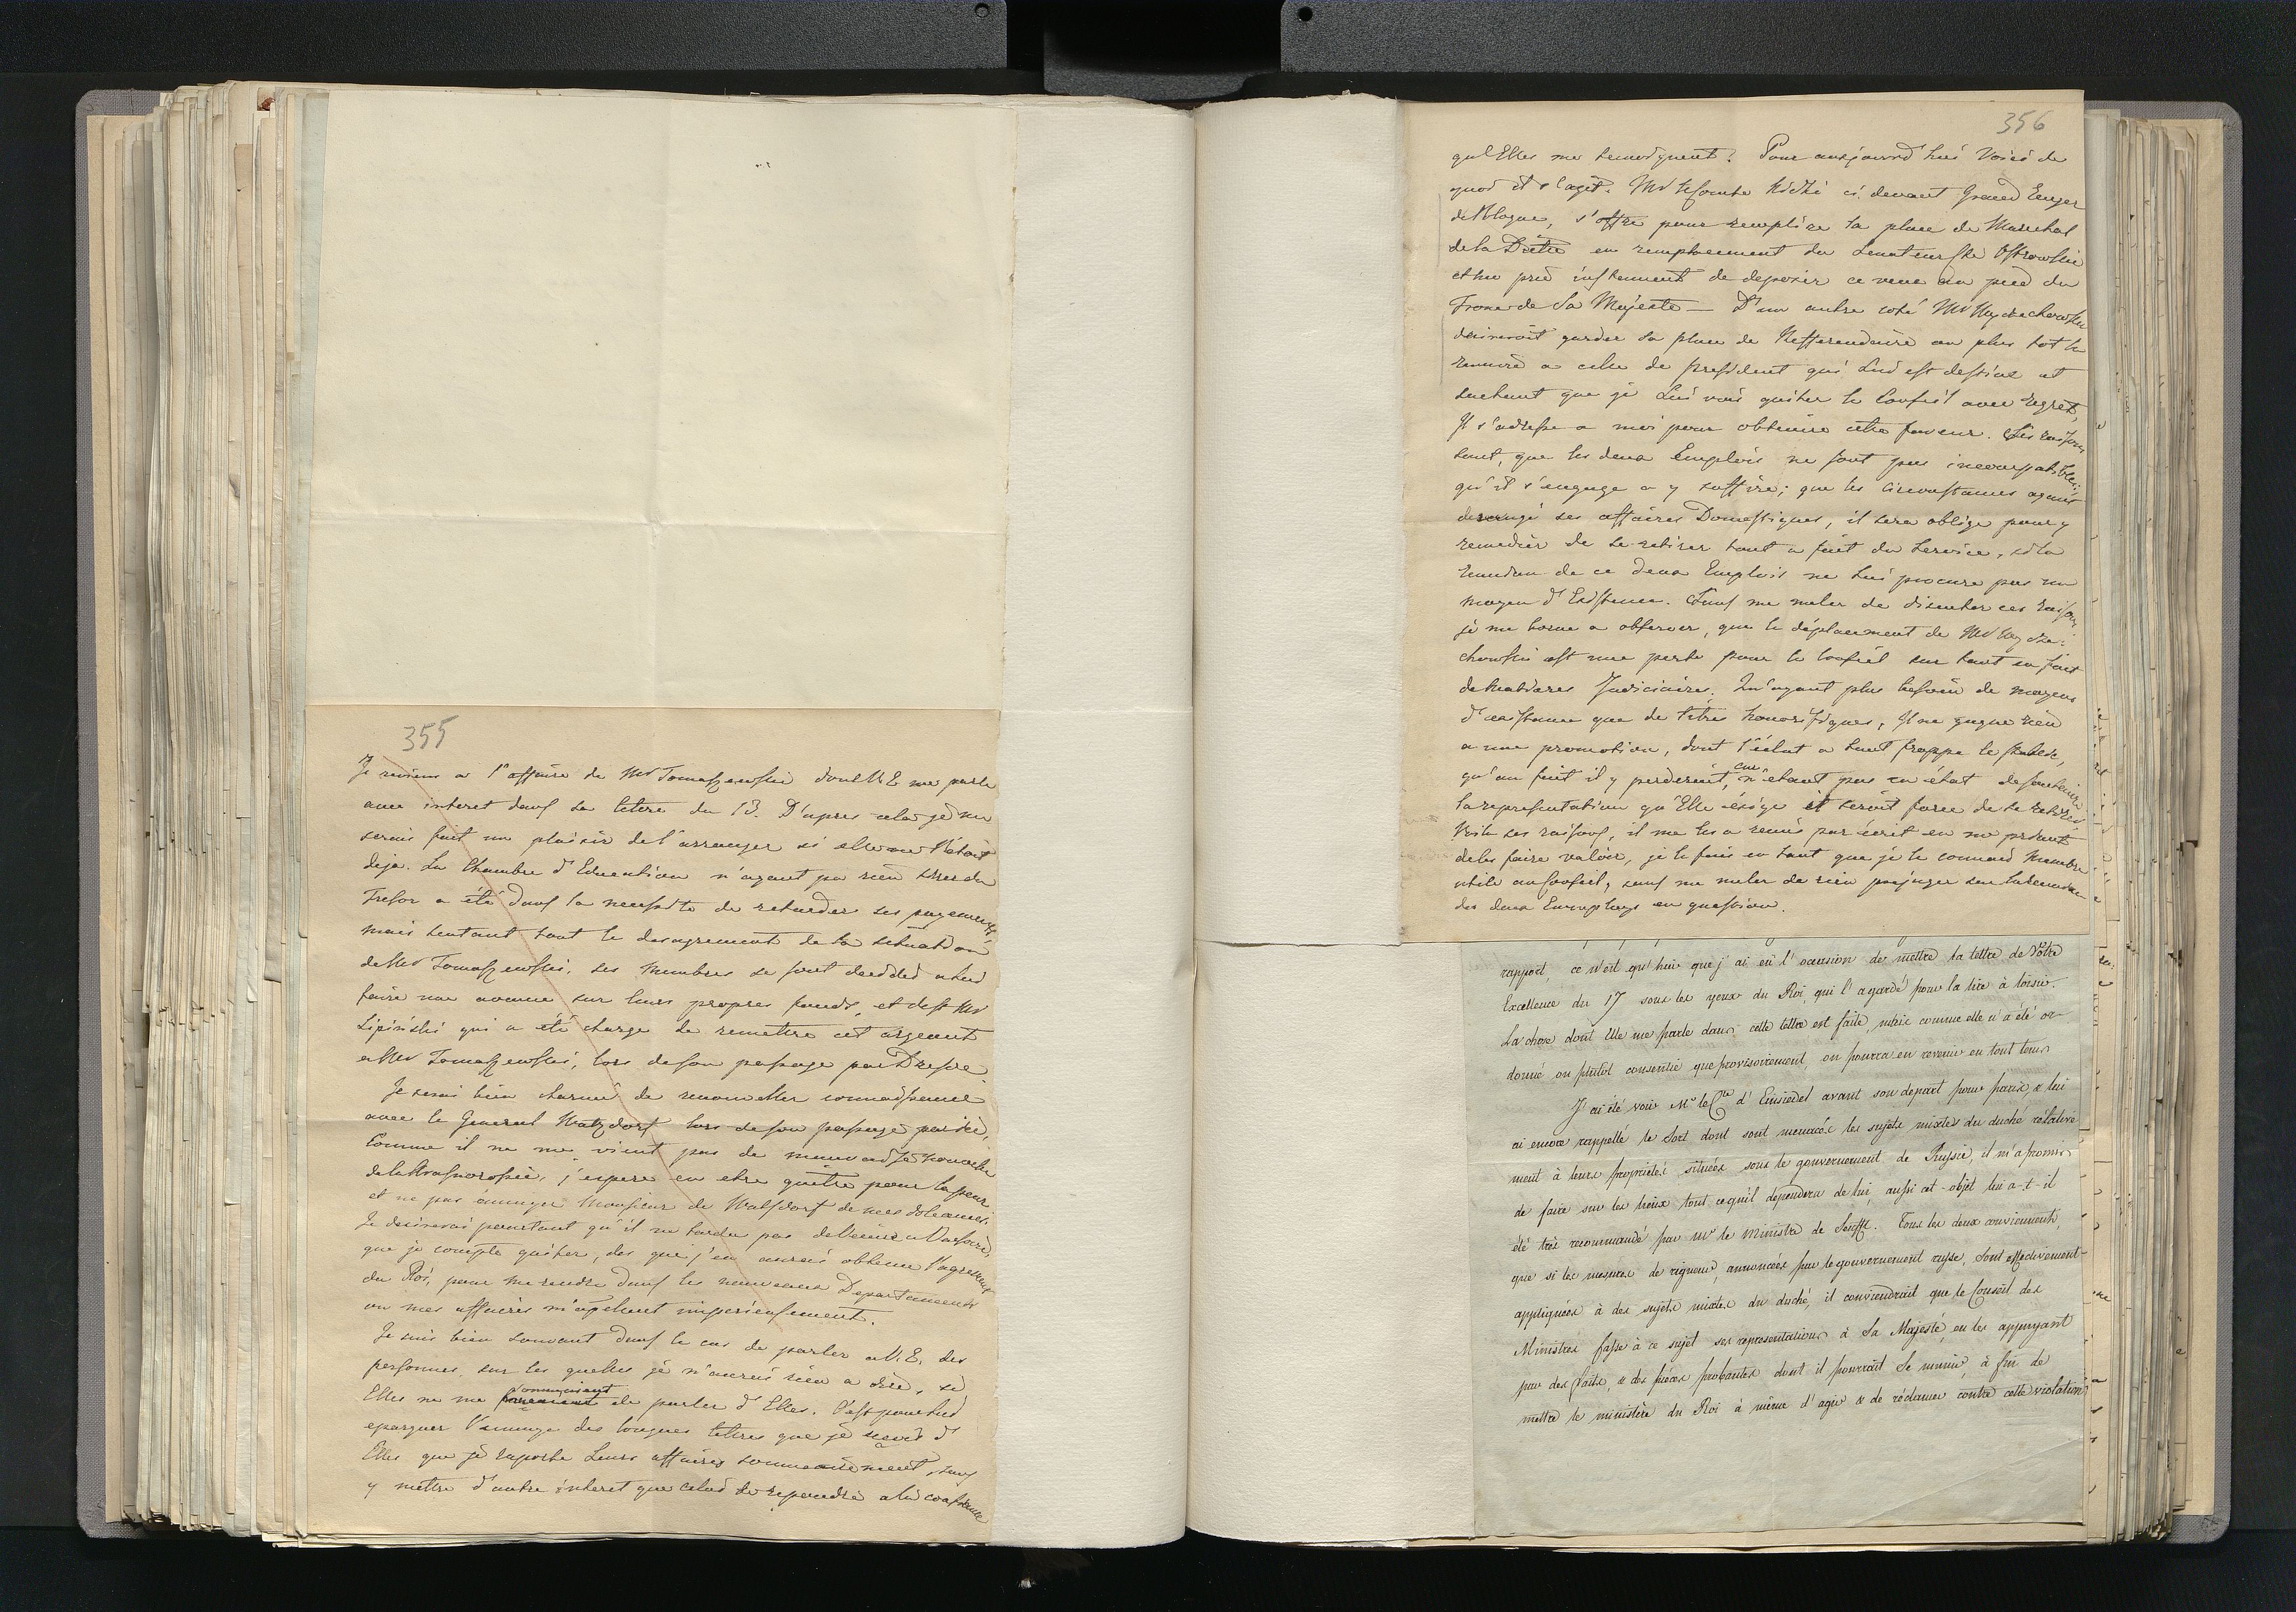 355
Je reviens a l'affaire de Mr Tomaszewski dont V.E. me parle
avec interet dans sa lettre du 13. D'apres cela je me
serais fait un plaisir de l'arranger si elle ne l'étoit
deja. La Chambre d'Education n'ayant pu rien tirer du
Tresor a été dans la necessite de retarder ses payements
mais sentant tout le desagrement de la situation
de Mr Tomaszewski, ses membres se sont decidés a lui
faire une avance sur leurs propres fonds, et c'est Mr
Lipiński qui a été charge de remettre cet argent
a Mr Tomaszewski, lors de son passage par Dresde.
Je serai bien charmé de renouveller connaissance
avec le General Watzdorf lors de son passage par ici,
Comme il ne me vient pas de mauvaise nouvelle
de la j'espere en etre quitte pour la peur
et ne pas ennuyer Monsieur de Watzdorf de mes doleances.
Je desirerai pourtant qu'il ne tarda pas de venir a Varsovie,
que je compte quiter, des que j'en aurai obtenu l'agrement
du Roi, pour me rendre dans les nouveaux Departements
ou mes affaires m'apelent imperieusement.
Je suis bien souvent dans le cas de parler a V.E. des
personnes, sur les quelles je n'aurai rien a dire, si
Elles ne me pressaient de parler d'Elles. C'est pour lui
epargner l'ennuye des longues lettres que je recois d'
Elles que je raporte Leurs affaires sommairement, sans
y mettre d'autre interet que celui de repondre a la confiance
356
qu'Elles me temoignent. Pour aujourd'hui Voici de
quoi il s'agit. Mr le Comte Kicki ci devant Grand Ecuyer
de Pologne, s'offre pour remplire la place de Marechal
de la Diete en remplacement du Senateur Cte Ostrowski
et me prie instamment de deposer ce voeu au pied du
Trone de Sa Majesté — D'un autre coté Mr Wyczechowski
desireroit garder sa place de Refferendaire ou plus tot la
reunire a celle de president qui Lui est destiné et
sachant que je Lui vois quiter le Conseil avec regret,
Il s'adresse a moi pour obtenire cette faveur. Ses raisons
sont, que les deux Emplois ne sont pas incompatibles;
qu'il s'engage a y suffire; que les circonstances ayant
derangé ses affaires Domestiques, il sera oblige pour y
remedier de se retirer tout a fait du service, si la
reunion de ce deux Emplois ne Lui procure pas un
moyen d'Existence. Sans me meler de discuter ces raisons
je me borne a observer, que le déplacement de Mr Wycze-
chowski est une perte pour le Conseil sur tout en fait
de matieres Judiciaires. N'ayant plus besoin de moyens
d'existence que de titres honorifiques, Il ne gagne rien
a une promotion, dont l'éclat a tant frappe le Public,
qu'au fait il y perderoit, car n'etant pas en état de soutenir
la representation qu'Elle exige il seroit force de se retirer
Voila ses raisons, il me les a remis par écrit en me priant
de les faire valoir, je le fais en tant que je le connais Membre
utile au Conseil, sans me meler de rien prejuger sur la reunion
des deux Employs en question.
rapport, ce n'est qu'hier que j'ai eû l'occasion de mettre la lettre de Vôtre
Excellence du 17 sous les yeux du Roi, qui l'a gardé pour la lire à loisir.
La chose dont Elle me parle dans cette lettre est faite, mais comme elle n'a été or-
donné ou plutôt consentie que provisoirement, on pourra en revenir en tout tems
J'ai été voir Mr le Cte d'Einsiedel avant son depart pour paris, & lui
ai encore rappellé le sort dont sont menacés les sujets mixtes du duché relative
ment à leurs proprietés situées sous le gouvernement de Russie, il m'a promis
de faire sur les lieux tout ce qu'il dependera de lui, aussi cet objet lui a-t-il
été très recommandé par Mr le Ministre de Senfft. Tous les deux conviennent,
que si les mesures de rigueur, annoncées par le gouvernement russe, sont effectivement
appliquées à des sujets mixtes du duché, il conviendrait que le Conseil des
Ministres fasse à ce sujet ses representations à Sa Majesté, en les appuyant
par des faits, & des pièces probantes dont il pourrait se munir, à fin de
mettre le ministère du Roi à même d'agir & de réclamer contre cette violation